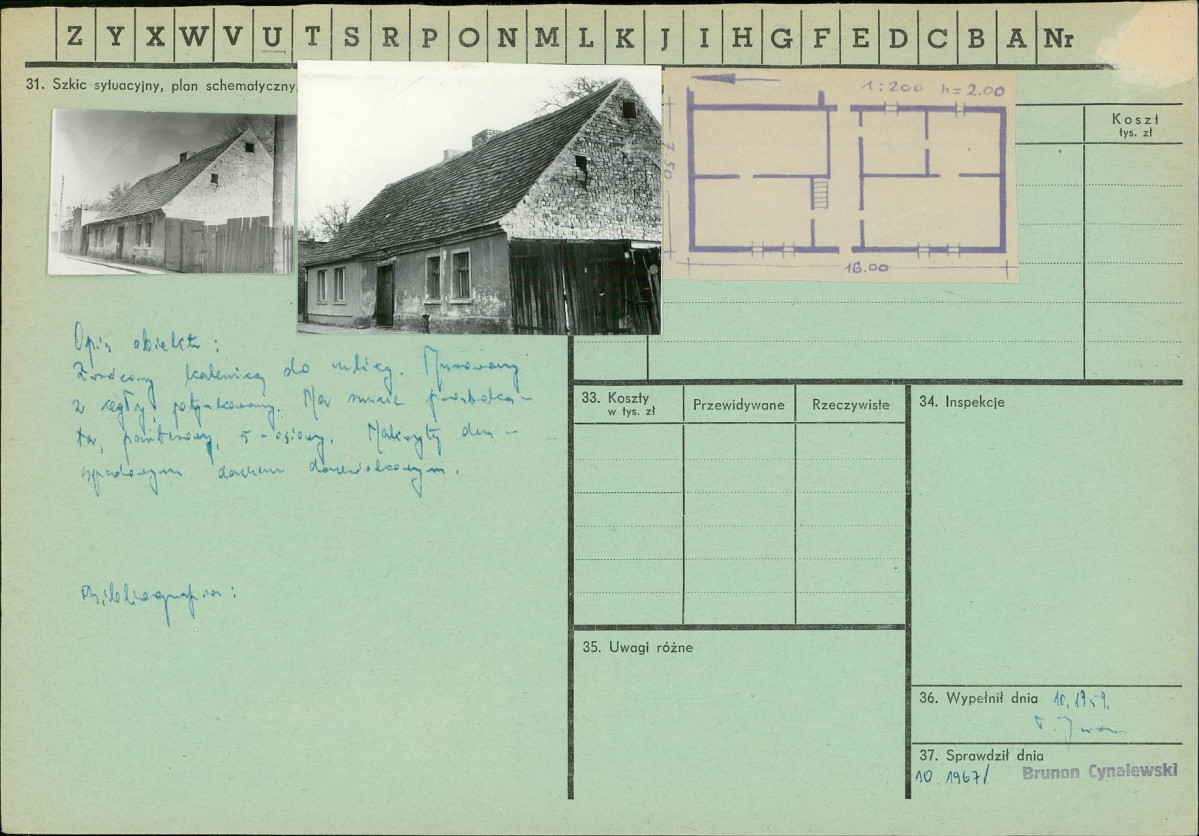 Z Y X W V U T S R P O N M L K J I H G F E D C B A Nr
31. Szkic sytuacyjny, plan schematyczny,
1:200 h=2.00
7.50
16.00
Koszt
tys. zł
Opis obiektu:
Zwrócony kalenicą do ulicy. Murowany
z cegły, potynkowany. Na rzucie prostoką-
ta, parterowy, 5-osiowy. Nakryty dwu-
spadowym dachem dachówkowym.
Bibliografia:
33. Koszty
w tys. zł
Przewidywane
Rzeczywiste
34. Inspekcje
35. Uwagi różne
36. Wypełnił dnia 10.1959.
37. Sprawdził dnia
10.1967/ Brunon Cynalewski